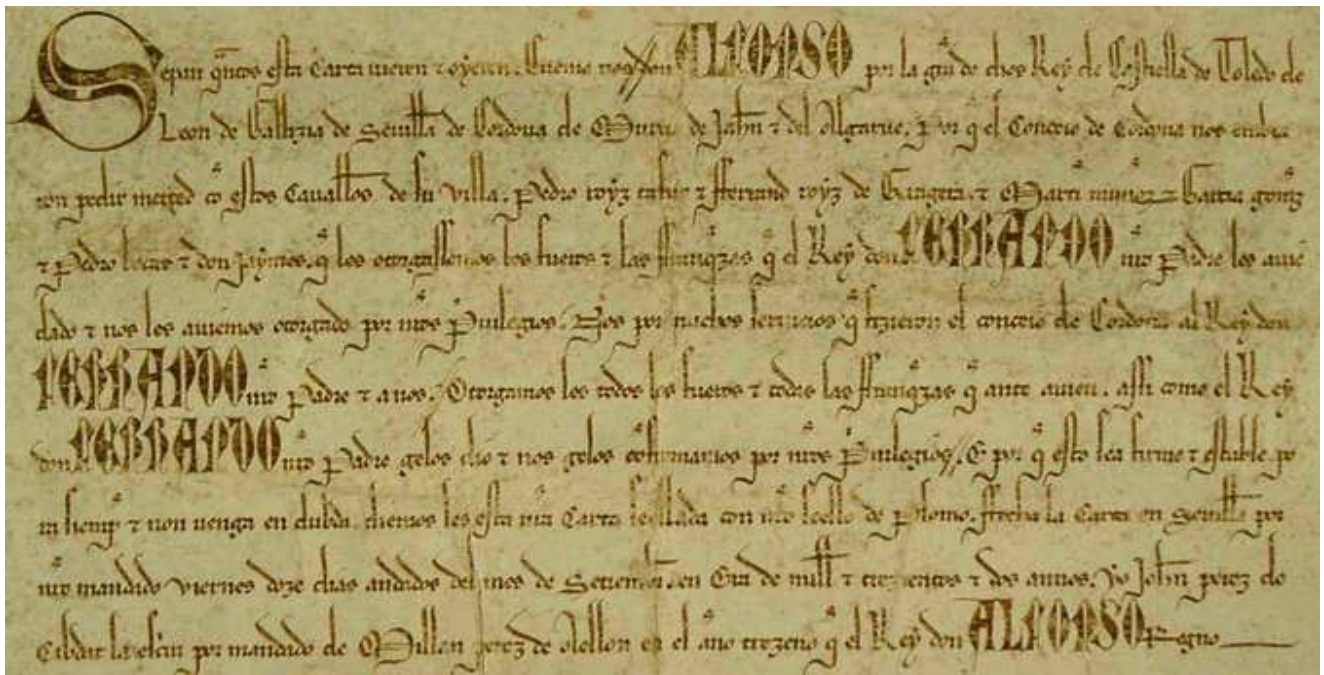 Sepan q̃ntos esta Carta uieren τ oyeren. Cuemo nos don ALFONSO por la gr̃a de dios Rey de Castiella de Toledo de
Leon de Gallizia de Seuilla de Cordoua de Murcia de Jahen τ del Algarue. Por q̃ el Conceio de Cordoua nos enbia
ron pedir merced cõ estos Caualł̃os de su villa. Pedro royz tafur τ fferrand royz de τ Martĩ munnoz τ Garcia gom̃z
τ Pedro τ don Jaymes. q̃ les otorgassemos los fueros τ las ffranq̃zas q̃ el Rey don FERRANDO nr̃o Padre les auie
dado τ nos les auiemos otorgado por nr̃os Preuilegios. Nos por muchos seruicios q̃ fizieron el conceio de Cordoua al Rey don
FERRANDO nr̃o Padre τ a nos. Otorgamos les todos los fueros τ todas las ffranq̃zas q̃ ante auien. assi como el Rey
don FERRANDO nr̃o Padre gelos dio τ nos gelos cõfirmamos por nr̃os Preuilegios. E por q̃ esto sea firme τ estable po
ra siemp̃ τ non uenga en dubda. diemos les esta nr̃a Carta seellada con nr̃o seello de Plomo. ffecha la Carta en Seuilla por
nr̃o mandado viernes doze dias andados del mes de Setiembr̃. en Era de mill τ trezientos τ dos annos. yo Joh̃n perez de
Cibdat la escriui por mandado de Millan perez de Aellon en el año trezeno q̃ el Rey don ALFONSO Regno